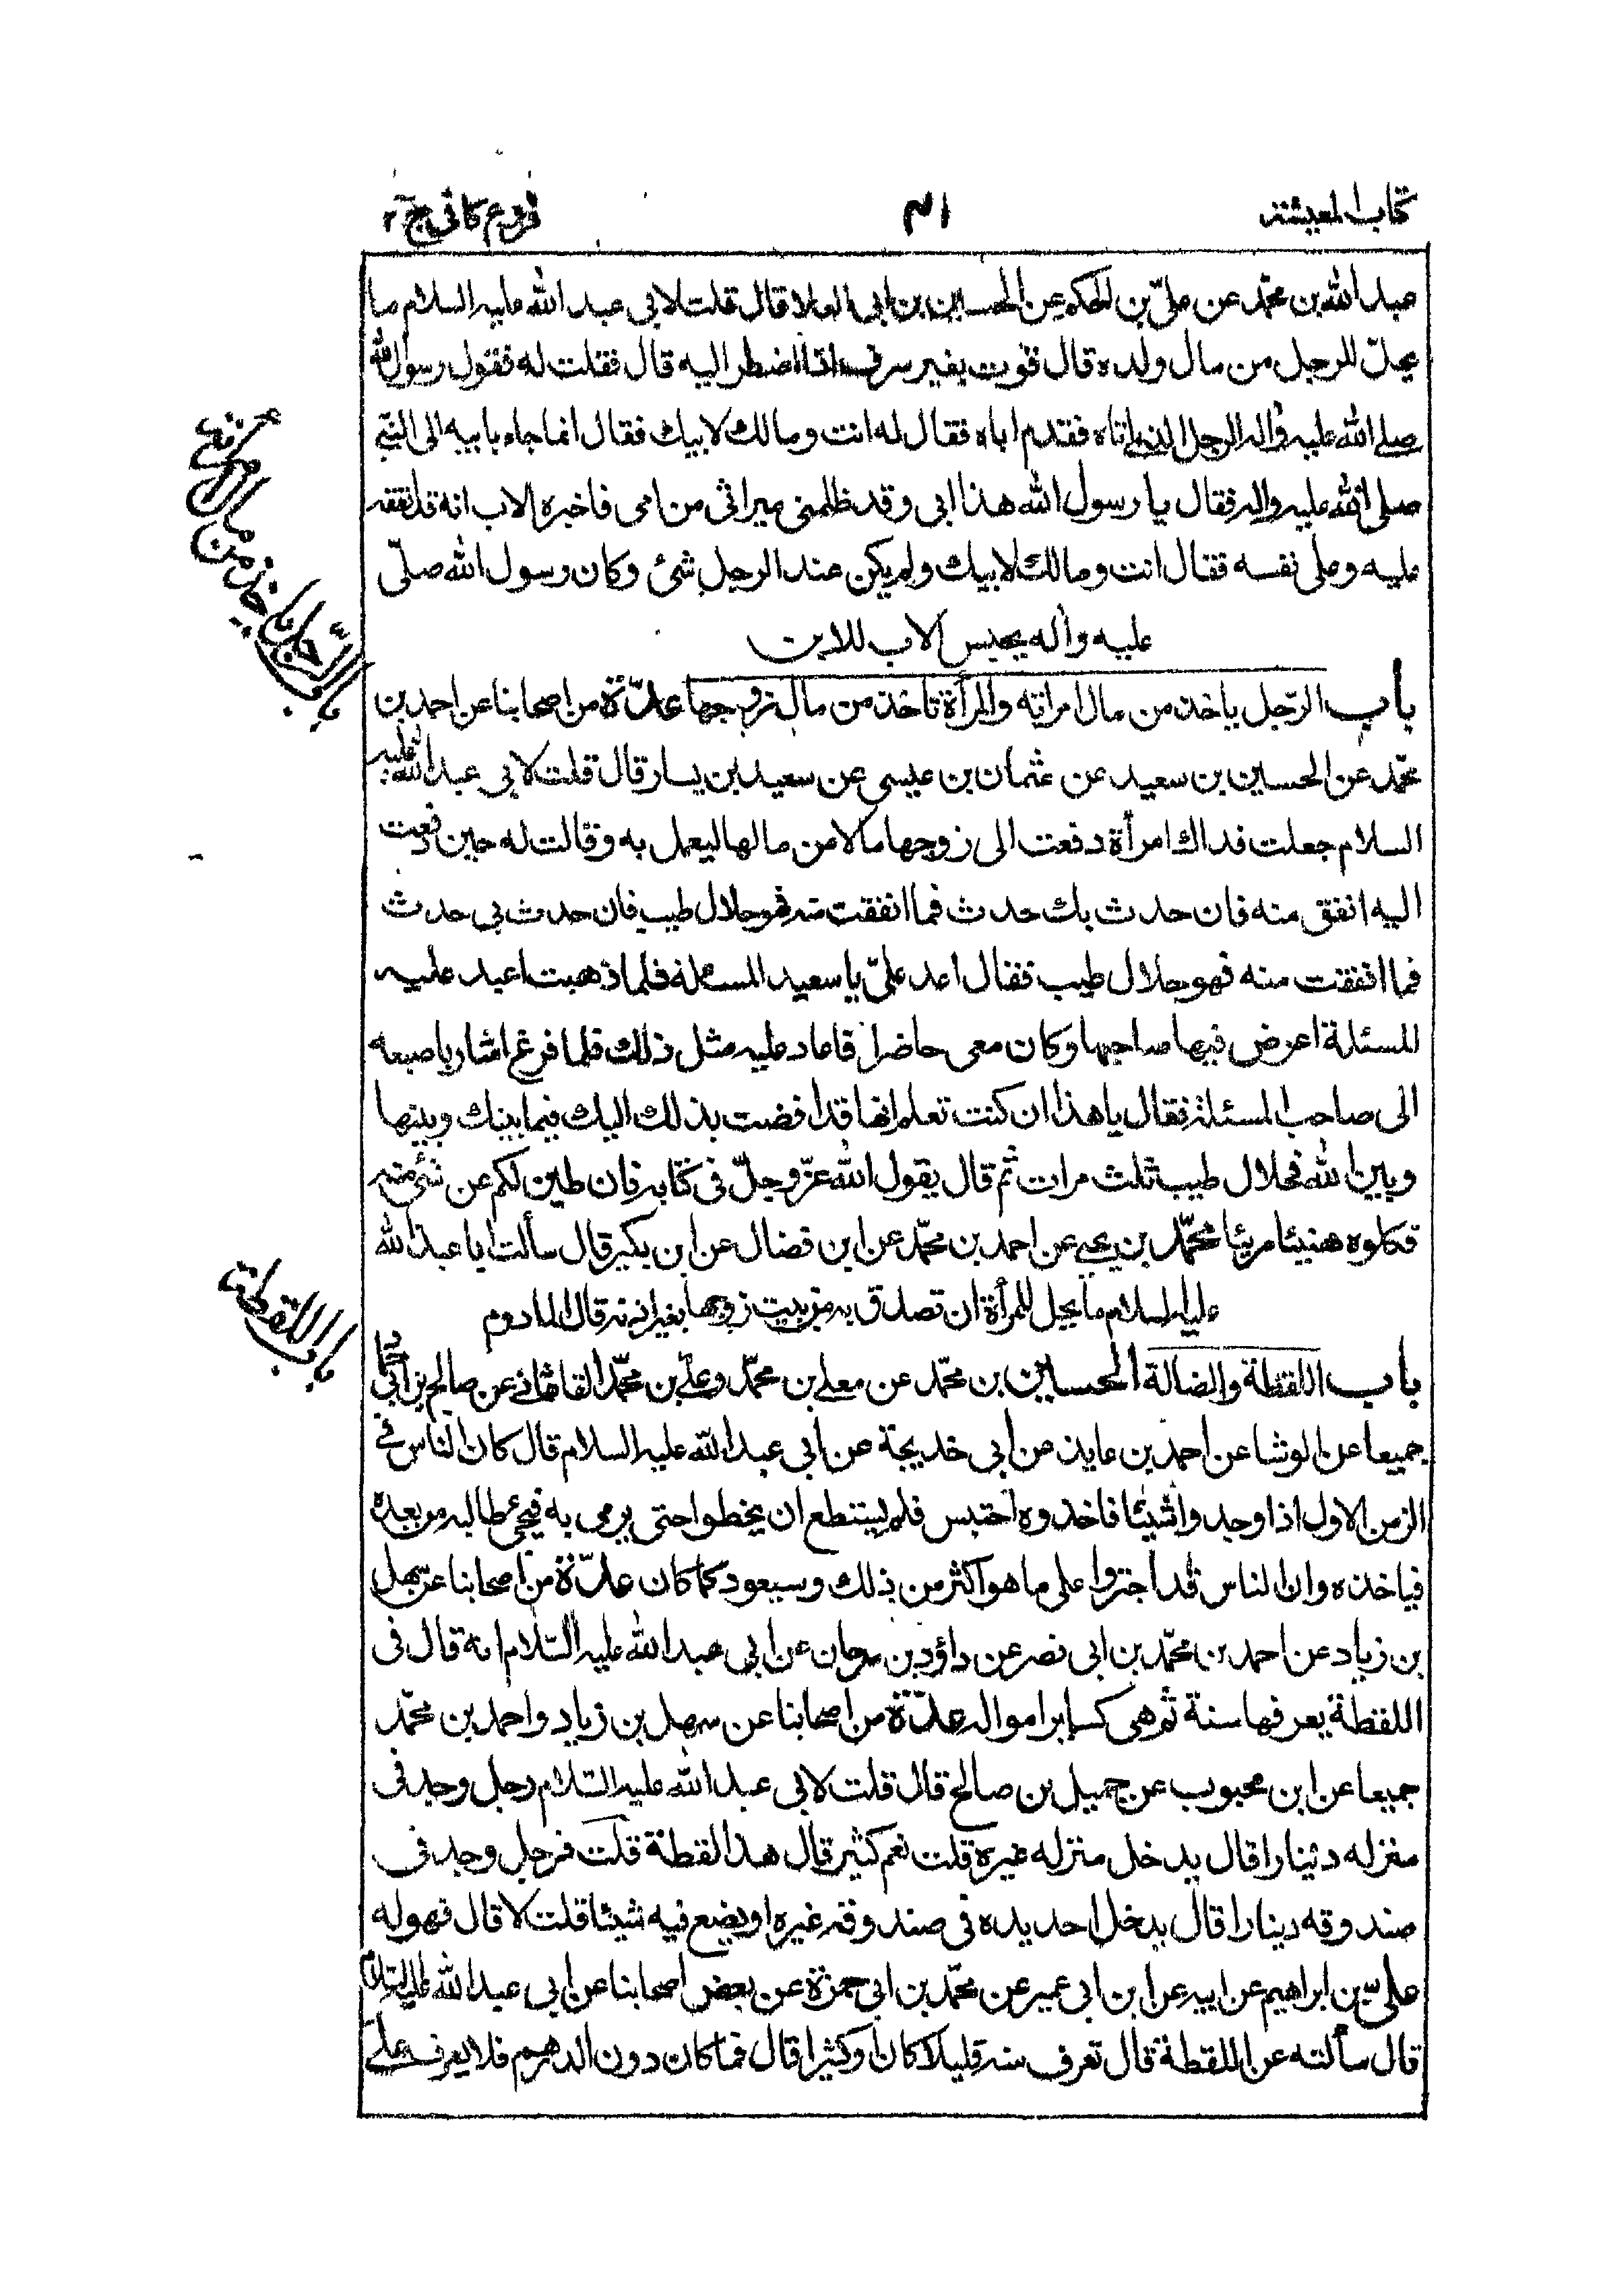 كتاب المعيشة
فروع كافي ج ٢
عبد الله بن محمد عن علىّ بن الحكم عن الحسين بن ابى العلا قال قلت لابى عبد الله عليه السلام ما
يحلّ للرجل من مال ولده قال قوت بغير سرف اذا اضطر اليه قال فقلت له فقول رسول الله
صلى الله عليه واله الرجل الذى اتاه فقدم اباه فقال له انت ومالك لابيك فقال انما جاء بابيه الى النبى
صلى الله عليه واله فقال يا رسول الله هذا ابى وقد ظلمنى ميراثى من امى فاخبره الاب انه قد انفقه
عليه وعلى نفسه فقال انت ومالك لابيك ولم يكن عند الرجل شئ وكان رسول الله صلّى
عليه واله يحبس الاب للابن
باب الرّجل ياخذ من مال امراته والمرأة تاخذ من مال زوجها عدّة من اصحابنا عن احمد بن
محمّد عن الحسين بن سعيد عن عثمان بن عيسى عن سعيد بن يسار قال قلت لابى عبد الله عليه
السلام جعلت فداك امرأة دفعت الى زوجها مالا من مالها ليعمل به وقالت له حين دفعت
اليه انفق منه فان حدث بك حدث فما انفقت منه فهو حلال طيب فان حدث بى حدث
فما انفقت منه فهو حلال طيب فقال اعد علىّ يا سعيد المسئلة فلما ذهبت اعيد عليه
المسئلة اعرض فيها صاحبها وكان معى حاضرا فاعاد عليه مثل ذلك فلما فرغ اشار باصبعه
الى صاحب المسئلة فقال يا هذا ان كنت تعلم انها قد افضت بذلك اليك فيما بينك وبينها
وبين الله فحلال طيب ثلث مرات ثم قال يقول الله عزّ وجلّ فى كتابه فان طبن لكم عن شئ منه
فكلوه هنيئا مريئا محمّد بن يحيى عن احمد بن محمّد عن ابن فضال عن ابن بكير قال سألت ابا عبد الله
عليه السلام ما يحل للمرأة ان تصدق به من بيت زوجها بغير اذنه قال المادوم
باب اللقطة والضالة الحسين بن محمّد عن معلى بن محمّد وعلى بن محمّد القاشانى عن صالح بن ابى
جميعا عن الوشا عن احمد بن عايذ عن ابى خديجة عن ابى عبد الله عليه السلام قال كان الناس فى
الزمن الاول اذا وجدوا شيئا فاخذوه احتبس فلم يستطع ان يخطوا حتى يرمى به فيجئ طالبه من بعده
فياخذه وان الناس قد اجتروا على ما هو اكثر من ذلك وسيعود كما كان عدّة من اصحابنا عن سهل
بن زياد عن احمد بن محمّد بن ابى نصر عن داؤد بن سرحان عن ابى عبد الله عليه السّلام انه قال فى
اللقطة يعرفها سنة ثم هى كساير امواله عدّة من اصحابنا عن سهل بن زياد واحمد بن محمّد
جميعا عن ابن محبوب عن جميل بن صالح قال قلت لابى عبد الله عليه السّلام رجل وجد فى
منزله دينارا قال يدخل منزله غيره قلت نعم كثير قال هذا لقطة قلت فرجل وجد فى
صندوقه دينارا قال يدخل احد يده فى صندوقه غيره او يضع فيه شيئا قلت لا قال فهو له
علىّ بن ابراهيم عن ابيه عن ابن ابى عمير عن محمّد بن ابى حمزة عن بعض اصحابنا عن ابى عبد الله عليه السّلام
قال سألته عن اللقطة قال تعرف سنة قليلا كان او كثيرا قال فما كان دون الدرهم فلا يعرف على
باب اللقطة